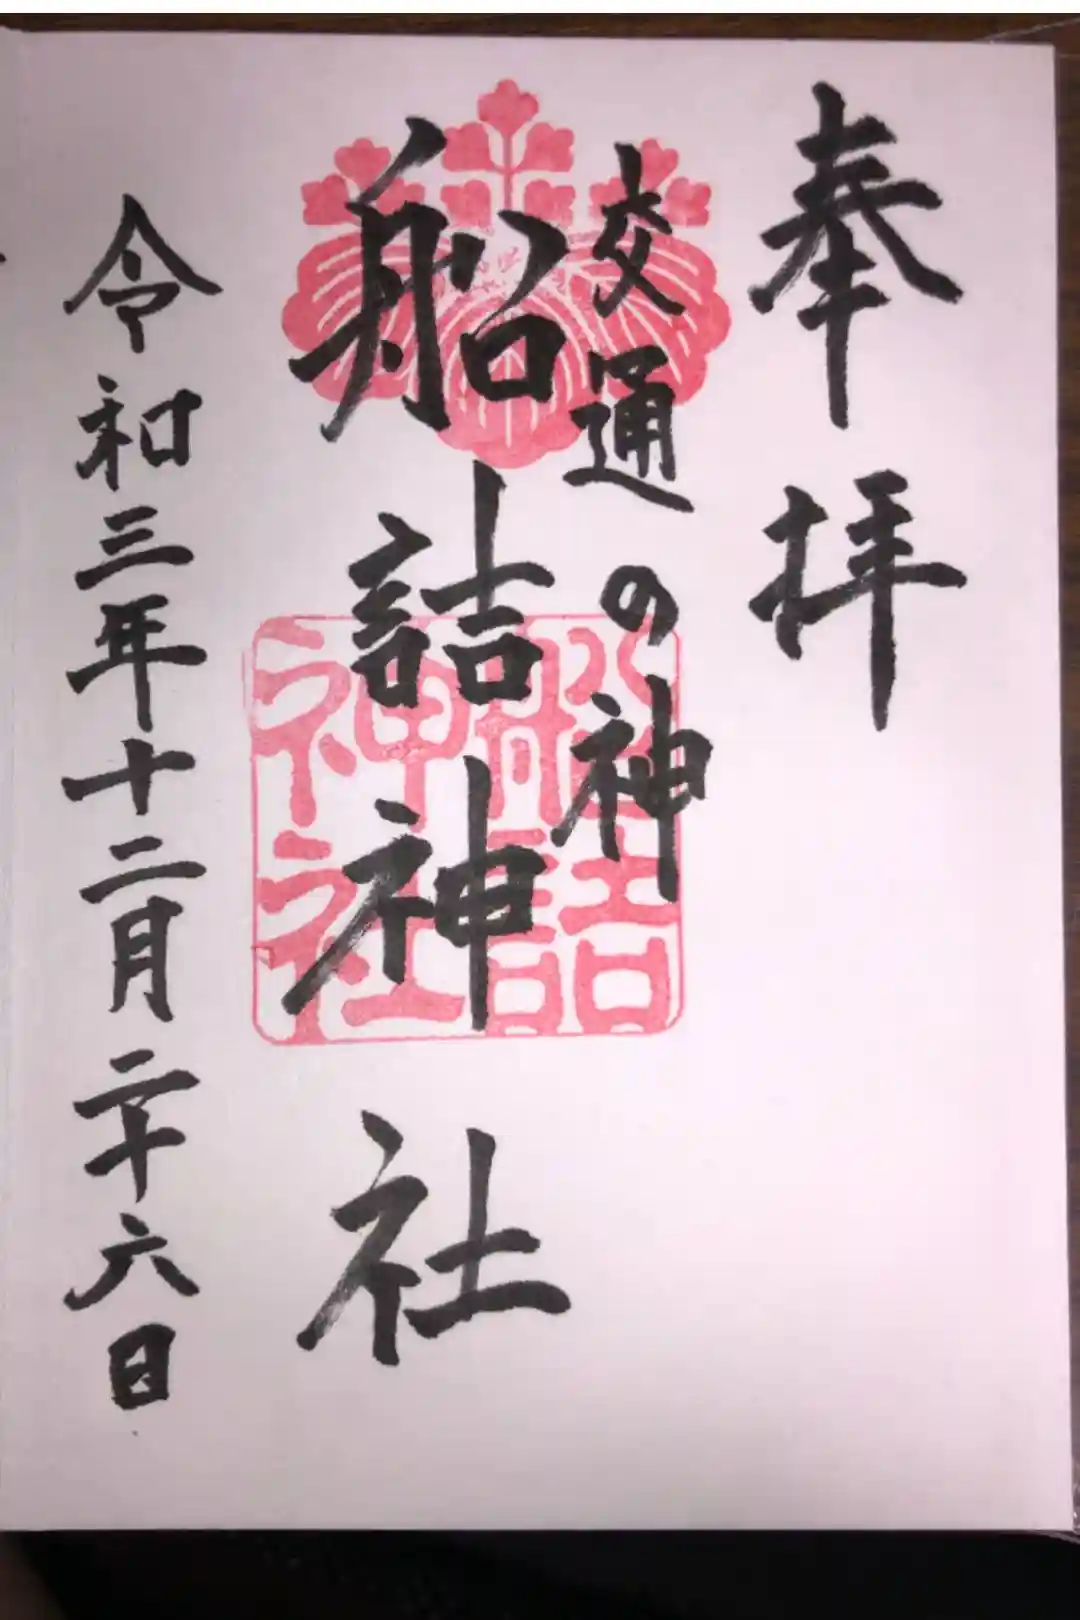 奉拝
交通の神
船詰神社
船詰神社
令和三年十二月二十六日